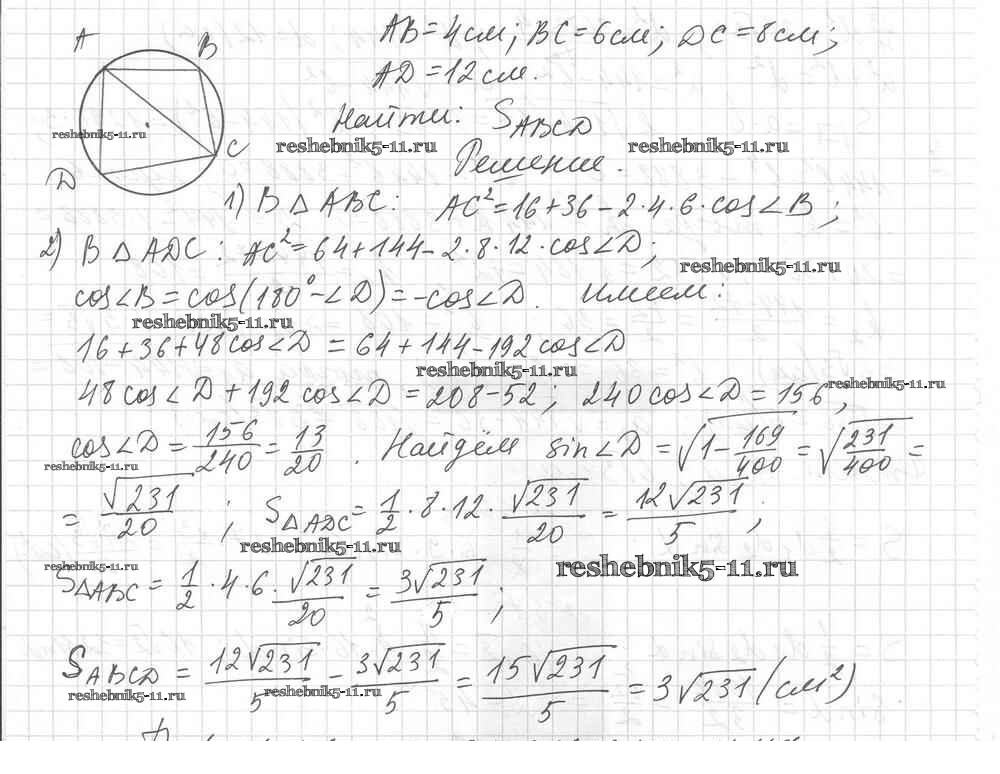 A B AB = 4см; BC = 6см; DC = 8см;
AD = 12см.
Найти: S_ABCD
reshebnik5-11.ru reshebnik5-11.ru reshebnik5-11.ru
D C Решение.
1) В △ ABC: AC² = 16 + 36 − 2·4·6·cos∠B;
2) В △ ADC: AC² = 64 + 144 − 2·8·12·cos∠D;
reshebnik5-11.ru
cos∠B = cos(180° − ∠D) = −cos∠D. Имеем:
reshebnik5-11.ru
16 + 36 + 48cos∠D = 64 + 144 − 192cos∠D
reshebnik5-11.ru
48cos∠D + 192cos∠D = 208 − 52; 240cos∠D = 156,
reshebnik5-11.ru
cos∠D = 156/240 = 13/20. Найдём sin∠D = √(1 − 169/400) = √(231/400) =
reshebnik5-11.ru
= √231/20; S△ADC = 1/2·8·12·√231/20 = 12√231/5;
reshebnik5-11.ru
reshebnik5-11.ru reshebnik5-11.ru
S△ABC = 1/2·4·6·√231/20 = 3√231/5;
S_ABCD = 12√231/5 − 3√231/5 = 15√231/5 = 3√231 (см²)
reshebnik5-11.ru reshebnik5-11.ru